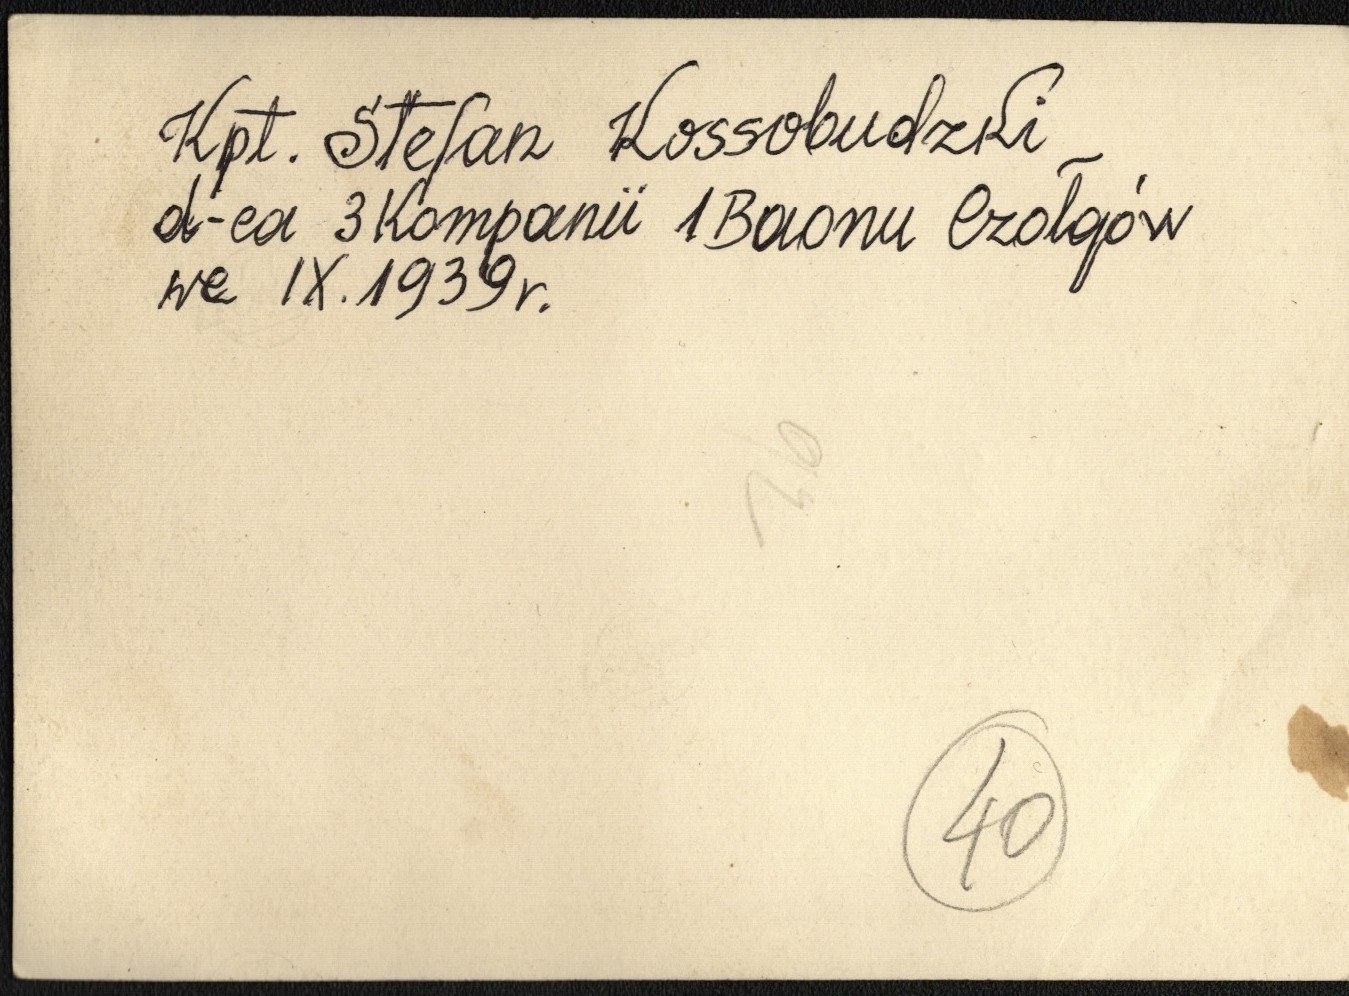 Kpt. Stefan Kossobudzki
d-ca 3 Kompanii 1 Baonu Czołgów
we IX. 1939 r.
40